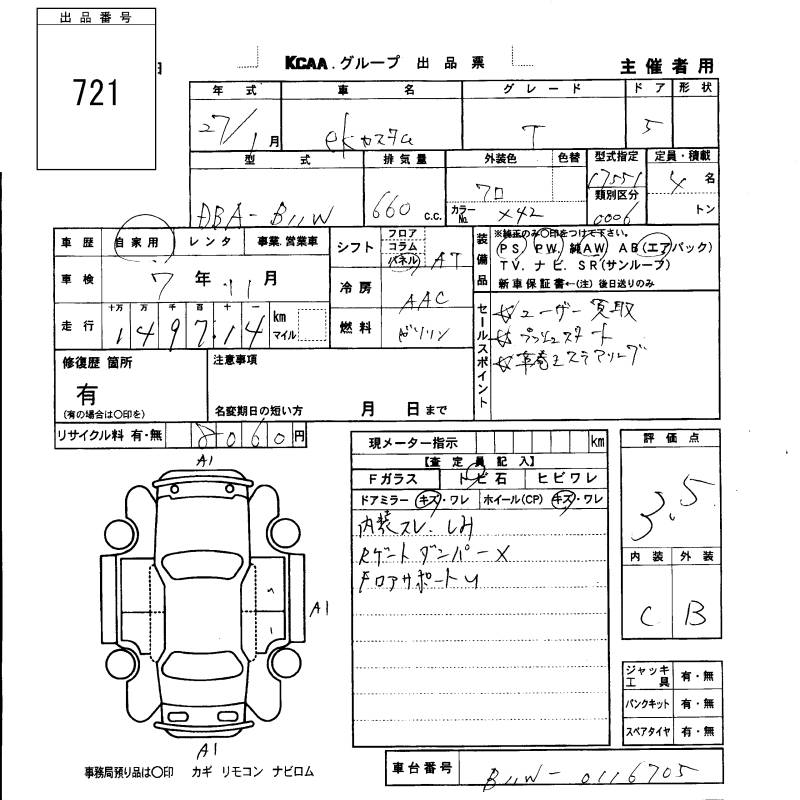 出品番号
721
KCAA.グループ 出品票
主催者用
年式 車名 グレード ドア 形状
27/1月 ekカスタム T 5
型式 排気量 外装色 色替 型式指定 定員・積載
DBA-B11W 660 c.c. クロ 17551 4名
カラーNo. X42 類別区分 0006 トン
車歴 自家用 レンタ 事業.営業車
シフト フロア コラム パネル AT
装備品 ※純正のみ○印をつけて下さい。
PS PW. 純AW AB(エアバック)
TV. ナビ. SR(サンルーフ)
新車保証書←(注) 後日送りのみ
車検 7年11月
冷房 AAC
走行 十万 万 千 百 十 一
149714 km マイル
燃料 ガソリン
セールスポイント
☆ユーザー買取
☆プッシュスタート
☆革巻きステアリング
修復歴 箇所
有
(有の場合は○印を)
注意事項
名変期日の短い方 月 日まで
リサイクル料 有・無 8060円
現メーター指示 km
【査定員記入】
Fガラス トビ石 ヒビワレ
ドアミラー キズ・ワレ ホイール(CP) キズ・ワレ
内装スレ.しみ
Rゲートダンパー×
FロアサポートU
評価点
3.5
内装 外装
C B
A1
A1
A1
ジャッキ工具 有・無
パンクキット 有・無
スペアタイヤ 有・無
事務局預り品は○印 カギ リモコン ナビロム
車台番号 B11W-0116705